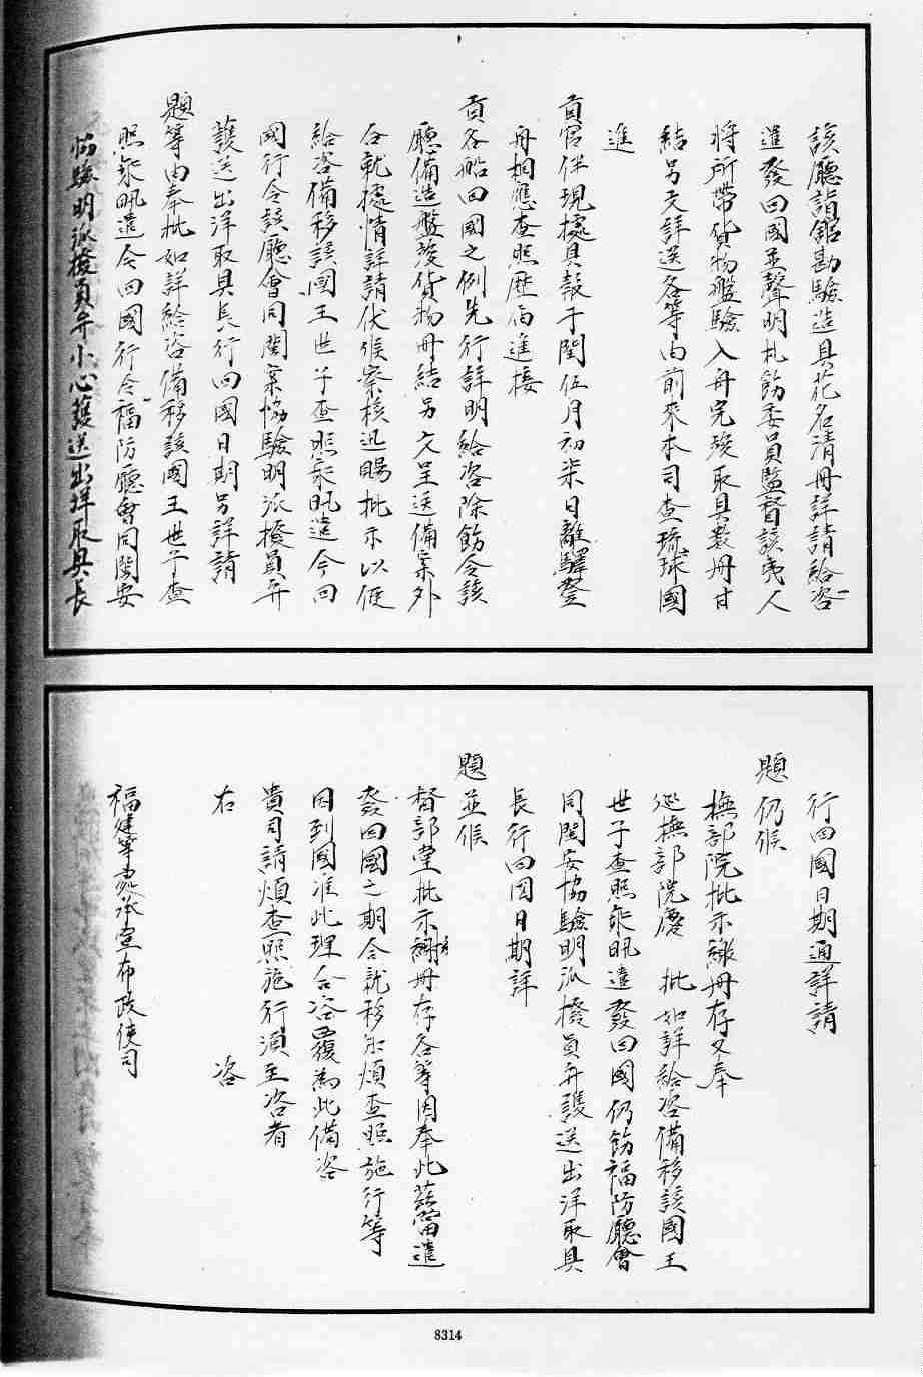 該廳詣館勘驗造具花名清册詳請給咨
遣發回國並聲明札飭委員監督該夷人
將所帶貨物盤驗入舟完竣取具數册甘
結另文詳送各等由前來本司查琉球國
進
貢官伴現據具報于閏伍月初柒日離驛登
舟相應查照歷俻進接
貢各船回國之例先行詳明給咨除飭令該
廳備造盤驗貨物册結另文呈送備案外
合就據情詳請伏候察核迅賜批示以便
給咨備移該國王世子查照來明遣令回
國行令該廳會同閩案協驗明派撥員弁
護送出洋取具長行回國日期另詳請
題等由奉批如詳給咨備移該國王世子查
照來明遣令回國行令福防廳會同閩安
協驗明派撥員弁小心護送出洋取具長
行回國日期通詳請
題仍候
撫部院批示繳册存又奉
巡撫部院慶 批如詳給咨備移該國王
世子查照來明遣發回國仍飭福防廳會
同閩安協驗明派撥員弁護送出洋取具
長行回國日期詳
題並候
督部堂批示繳册存各等因奉此茲當遣
發回國之期合就移知煩查照施行等
因到國准此理合咨覆為此備咨
貴司請煩查照施行須至咨者
右 咨
福建等處承宣布政使司
8314